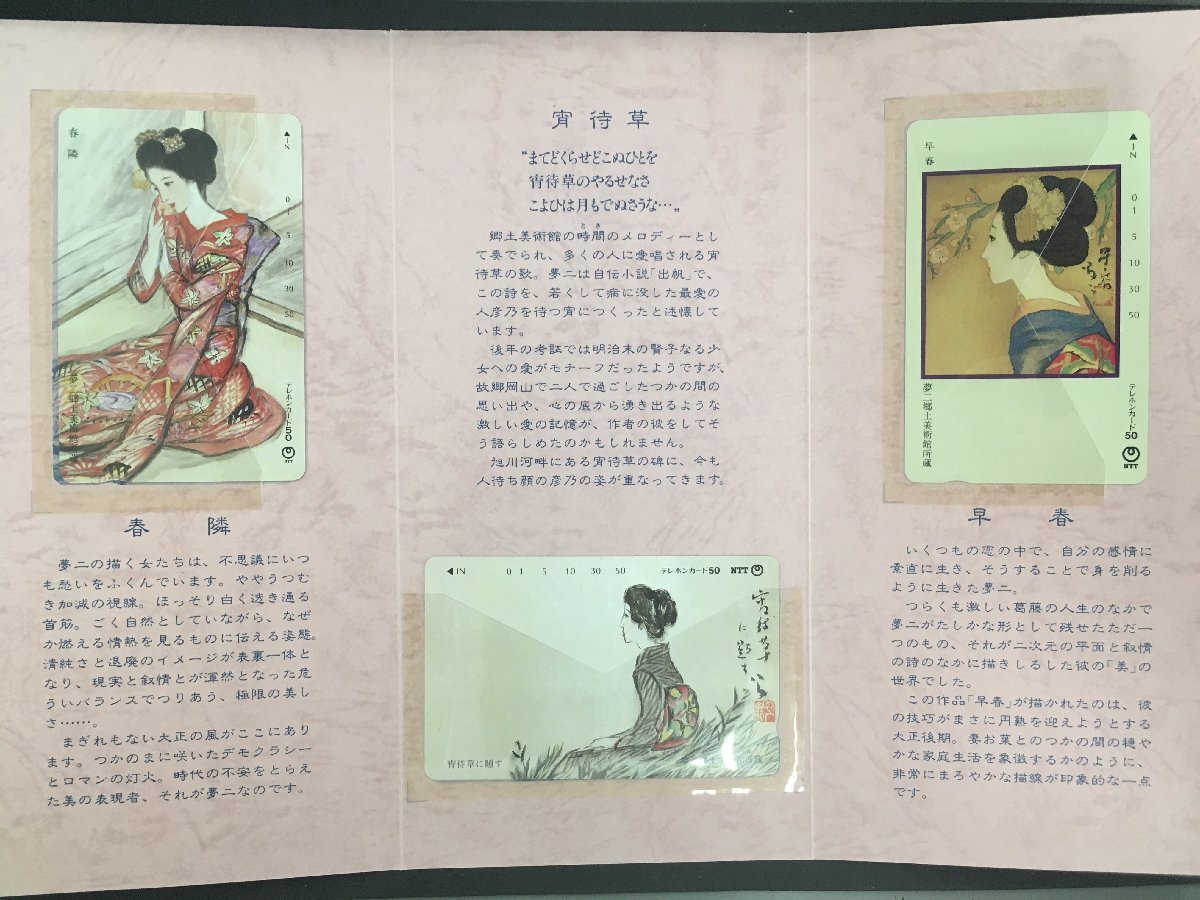 春隣
▲IN
0
1
5
10
30
50
テレホンカード50
NTT
夢二郷土美術館所蔵
春隣
夢二の描く女たちは、不思議にいつ
も愁いをふくんでいます。ややうつむ
き加減の視線。ほっそり白く透き通る
首筋。ごく自然としていながら、なぜ
か燃える情熱を見るものに伝える姿態。
清純さと退廃のイメージが表裏一体と
なり、現実と叙情とが渾然となった危
ういバランスでつりあう、極限の美し
さ……。
まぎれもない大正の風がここにあり
ます。つかのまに咲いたデモクラシー
とロマンの灯火。時代の不安をとらえ
た美の表現者、それが夢二なのです。
宵待草
“まてどくらせどこぬひとを
宵待草のやるせなさ
こよひは月もでぬさうな…„
とき
郷土美術館の時間のメロディーとし
て奏でられ、多くの人に愛唱される宵
待草の歌。夢二は自伝小説「出帆」で、
この詩を、若くして病に没した最愛の
人彦乃を待つ宵につくったと述懐して
います。
後年の考証では明治末の賢子なる少
女への愛がモチーフだったようですが、
故郷岡山で二人で過ごしたつかの間の
思い出や、心の底から湧き出るような
激しい愛の記憶が、作者の彼をしてそ
う語らしめたのかもしれません。
旭川河畔にある宵待草の碑に、今も
人待ち顔の彦乃の姿が重なってきます。
◀IN 0 1 5 10 30 50 テレホンカード50 NTT
宵待草
に題す
宵待草に題す
早春
▲IN
0
1
5
10
30
50
テレホンカード50
NTT
夢二郷土美術館所蔵
早春
いくつもの恋の中で、自分の感情に
素直に生き、そうすることで身を削る
ように生きた夢二。
つらくも激しい葛藤の人生のなかで
夢二がたしかな形として残せたただ一
つのもの、それが二次元の平面と叙情
の詩のなかに描きしるした彼の「美」の
世界でした。
この作品「早春」が描かれたのは、彼
の技巧がまさに円熟を迎えようとする
大正後期。妻お葉とのつかの間の穏や
かな家庭生活を象徴するかのように、
非常にまろやかな描線が印象的な一点
です。